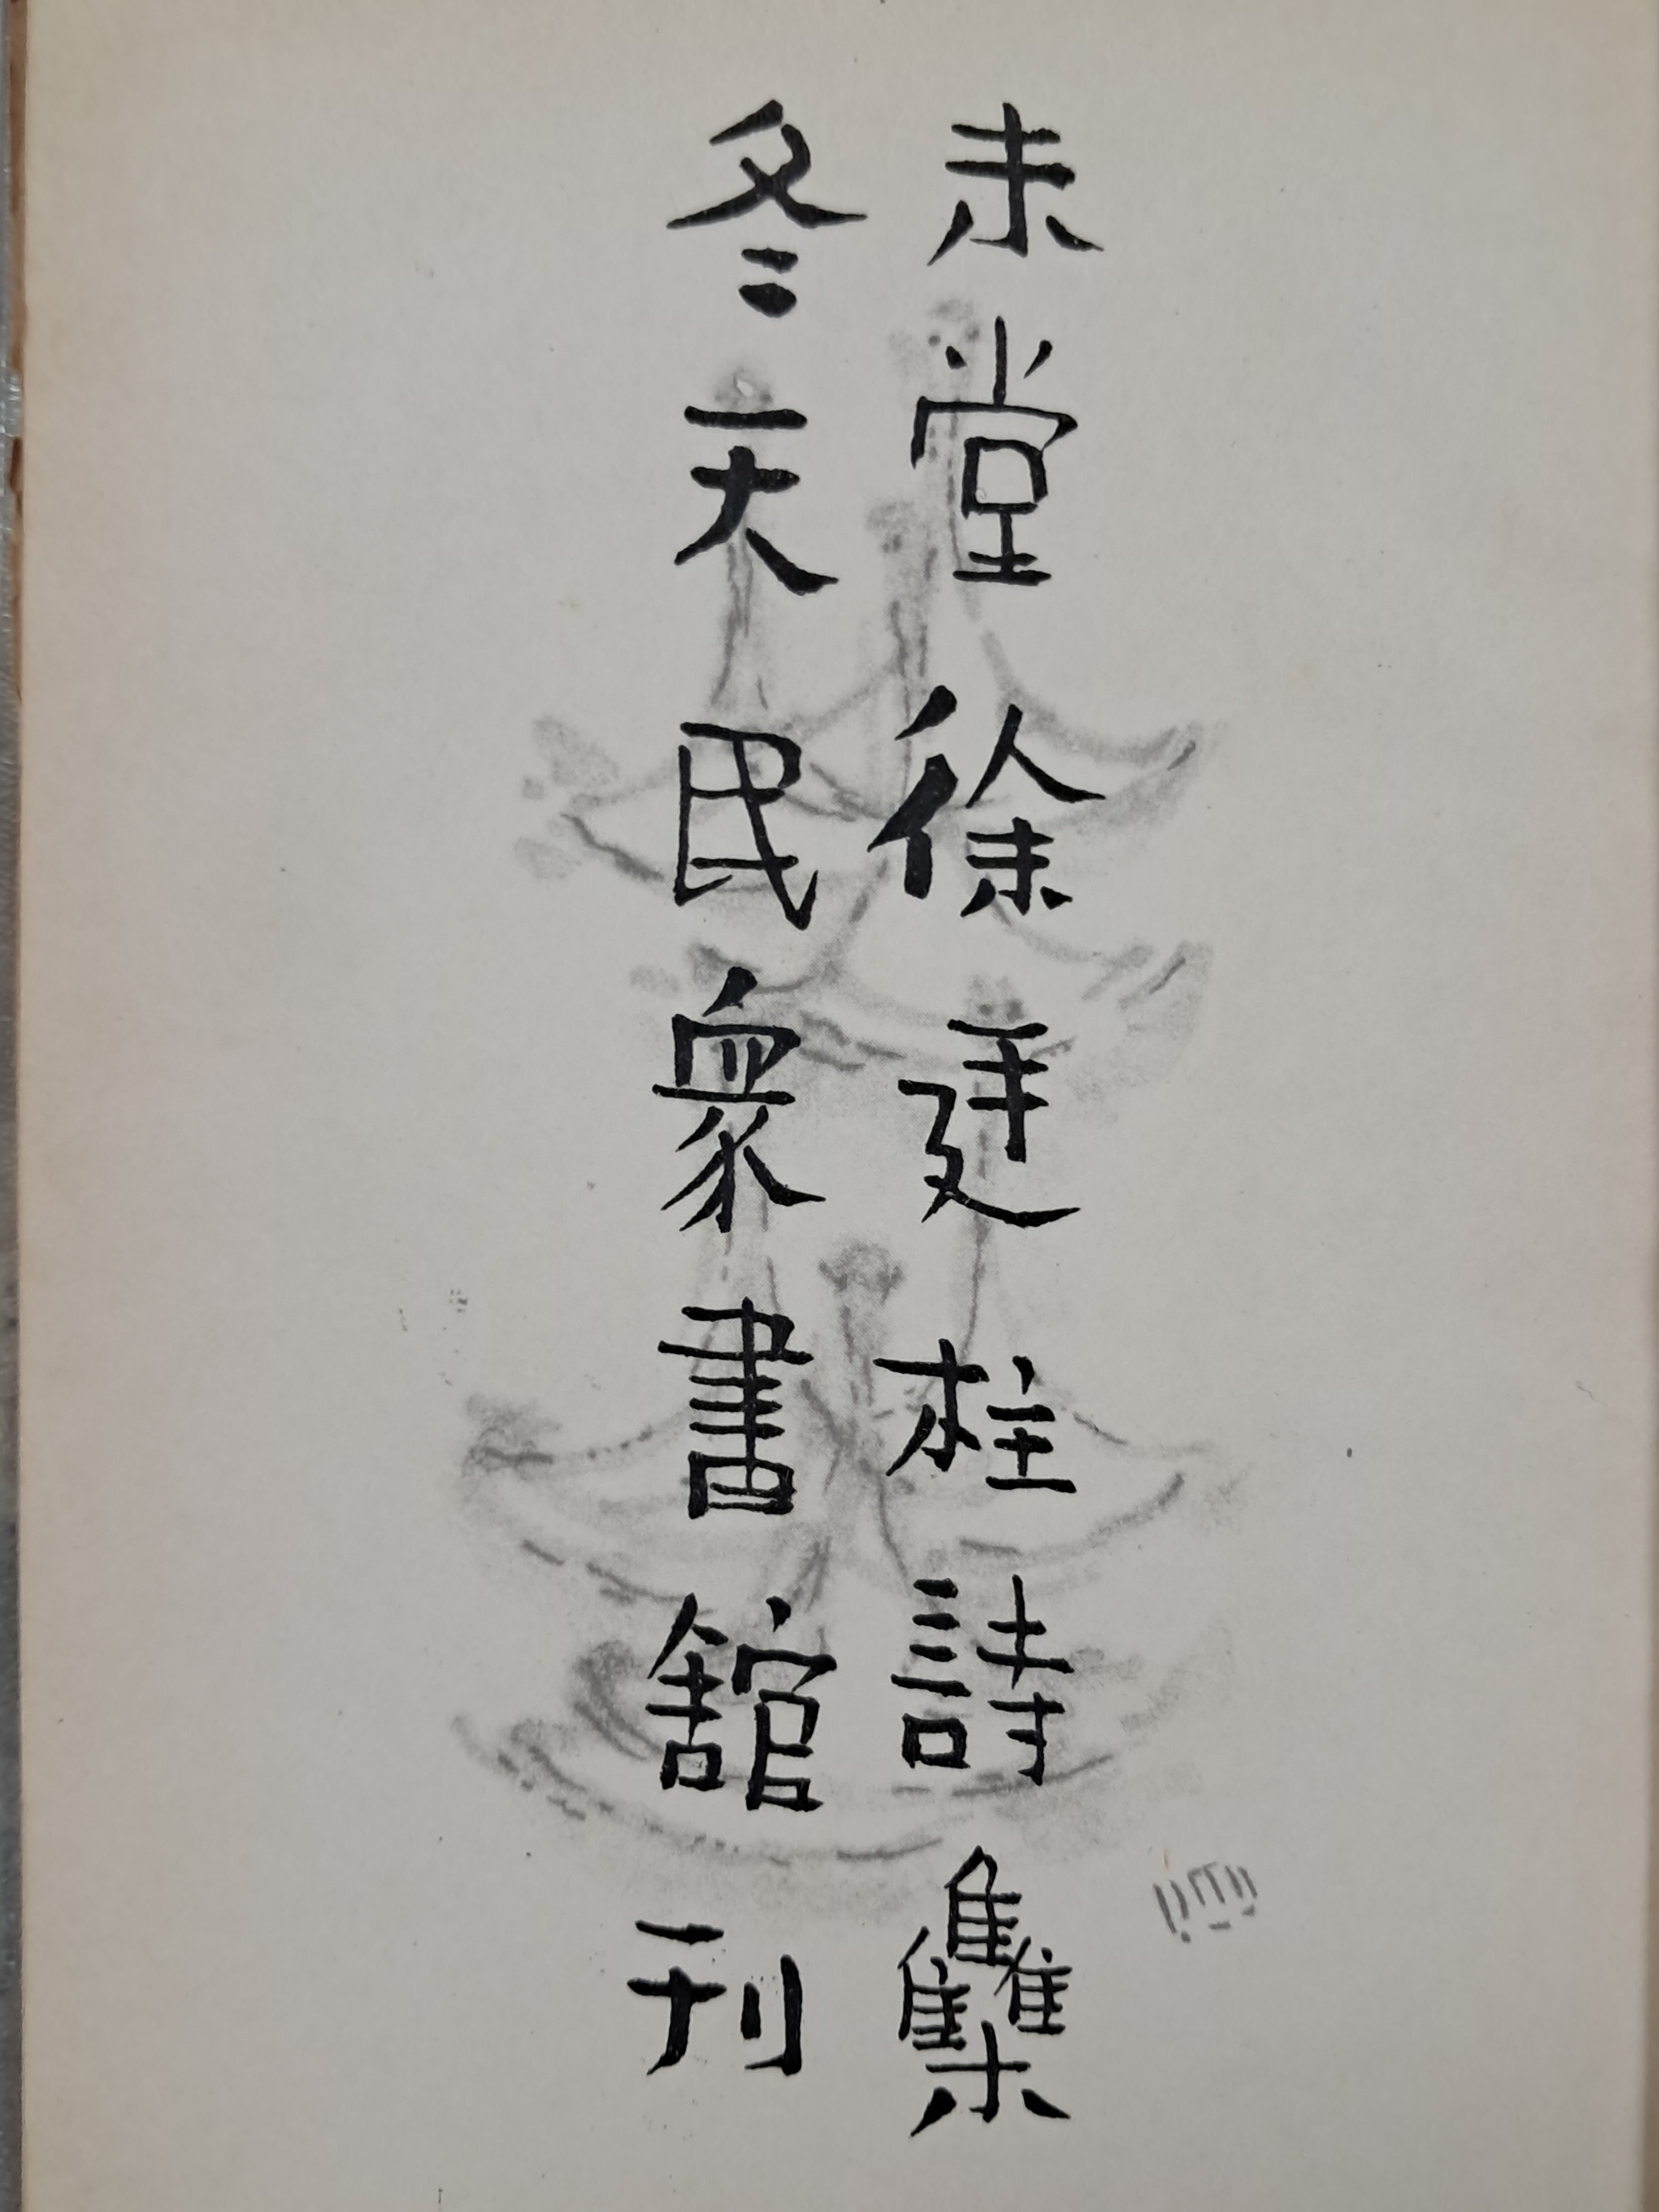 未堂徐廷柱詩雧
冬天民衆書舘刊